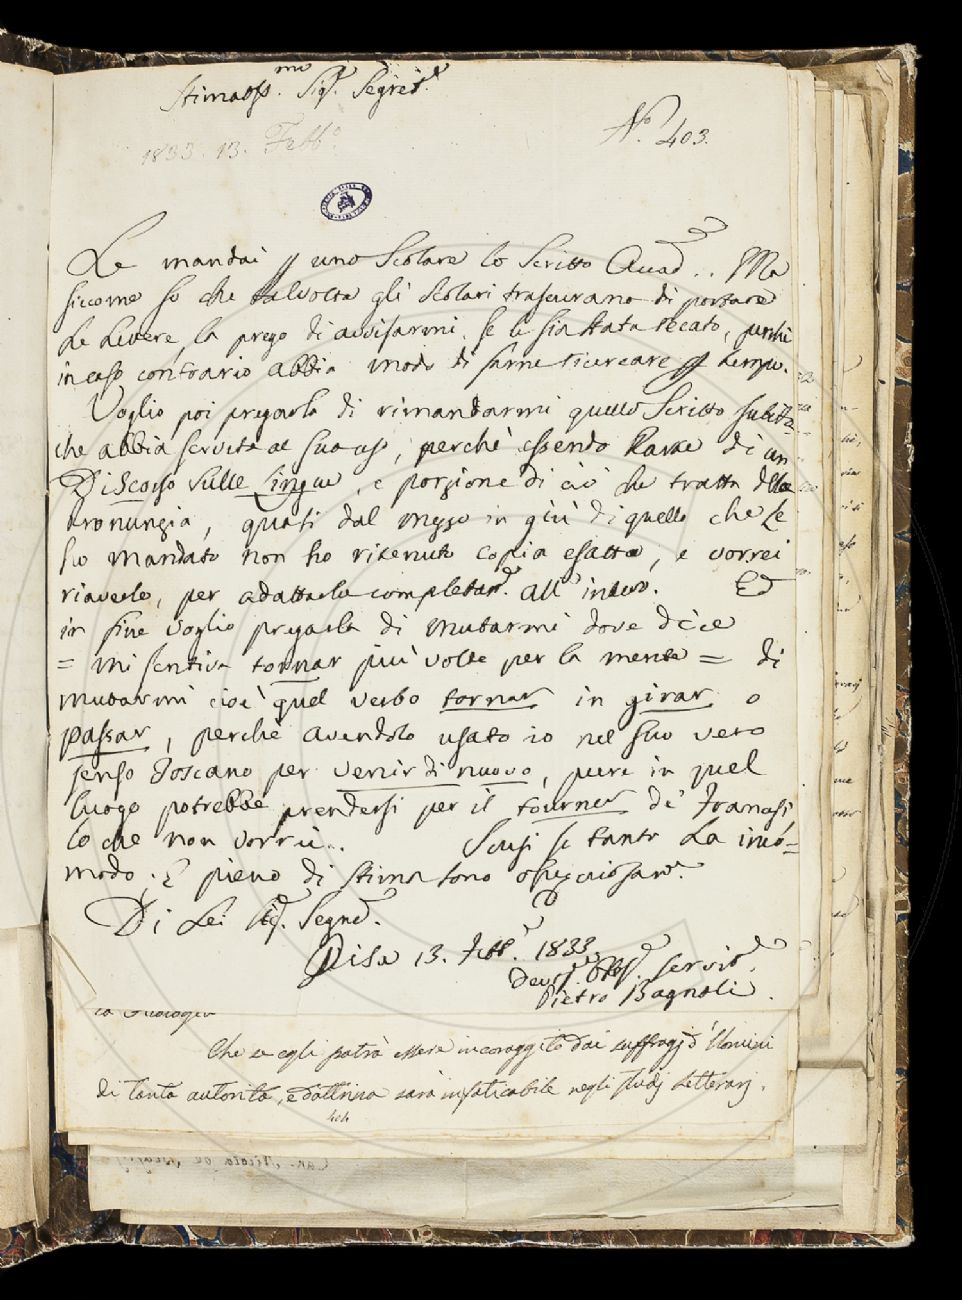 Stimatiss.mo Sig.r Segret.o
N.o 403.
1833. 13. Febb.o
Le mandai p uno Scolare lo Scritto Accad. .. Ma
siccome so che talvolta gli Scolari trascurano di portare
le lettere, la prego di avvisarmi se le sia stata recato, perchè
in caso contrario abbia modo di farne ricercare p tempo.
Voglio poi pregarla di rimandarmi quello Scritto subito
che abbia servito al suo uso, perchè essendo Parte di un
Discorso sulle Lingue, e porzione di ciò che tratta della
pronunzia, quasi dal mezzo in giù di quello che Le
ho mandato non ho ritenuto copia esatta, e vorrei
riaverlo, per adattarlo completam.e all' intero. Ed
in fine voglio pregarla di mutarmi dove dice
= mi sentiva tornar più volte per la mente = di
mutarmi cioè quel verbo tornar in girar o
passar, perchè avendolo usato io nel suo vero
senso Toscano per venir di nuovo, pure in quel
luogo potrebbe prendersi per il tourner de' Francesi
lo che non vorrei.. Scusi se tanto La inco=
modo; E pieno di stima sono ossequiosam.e
Di Lei Sig.r Segret.o
Pisa 13. Febb.o 1833
Dev.o Obb.o Servit.e
Pietro Bagnoli.
Che se egli potrà essere incoraggito dai suffragj d'Uomini
di tanta autorità, e dottrina sarà infaticabile negli studj Letterarj.
404